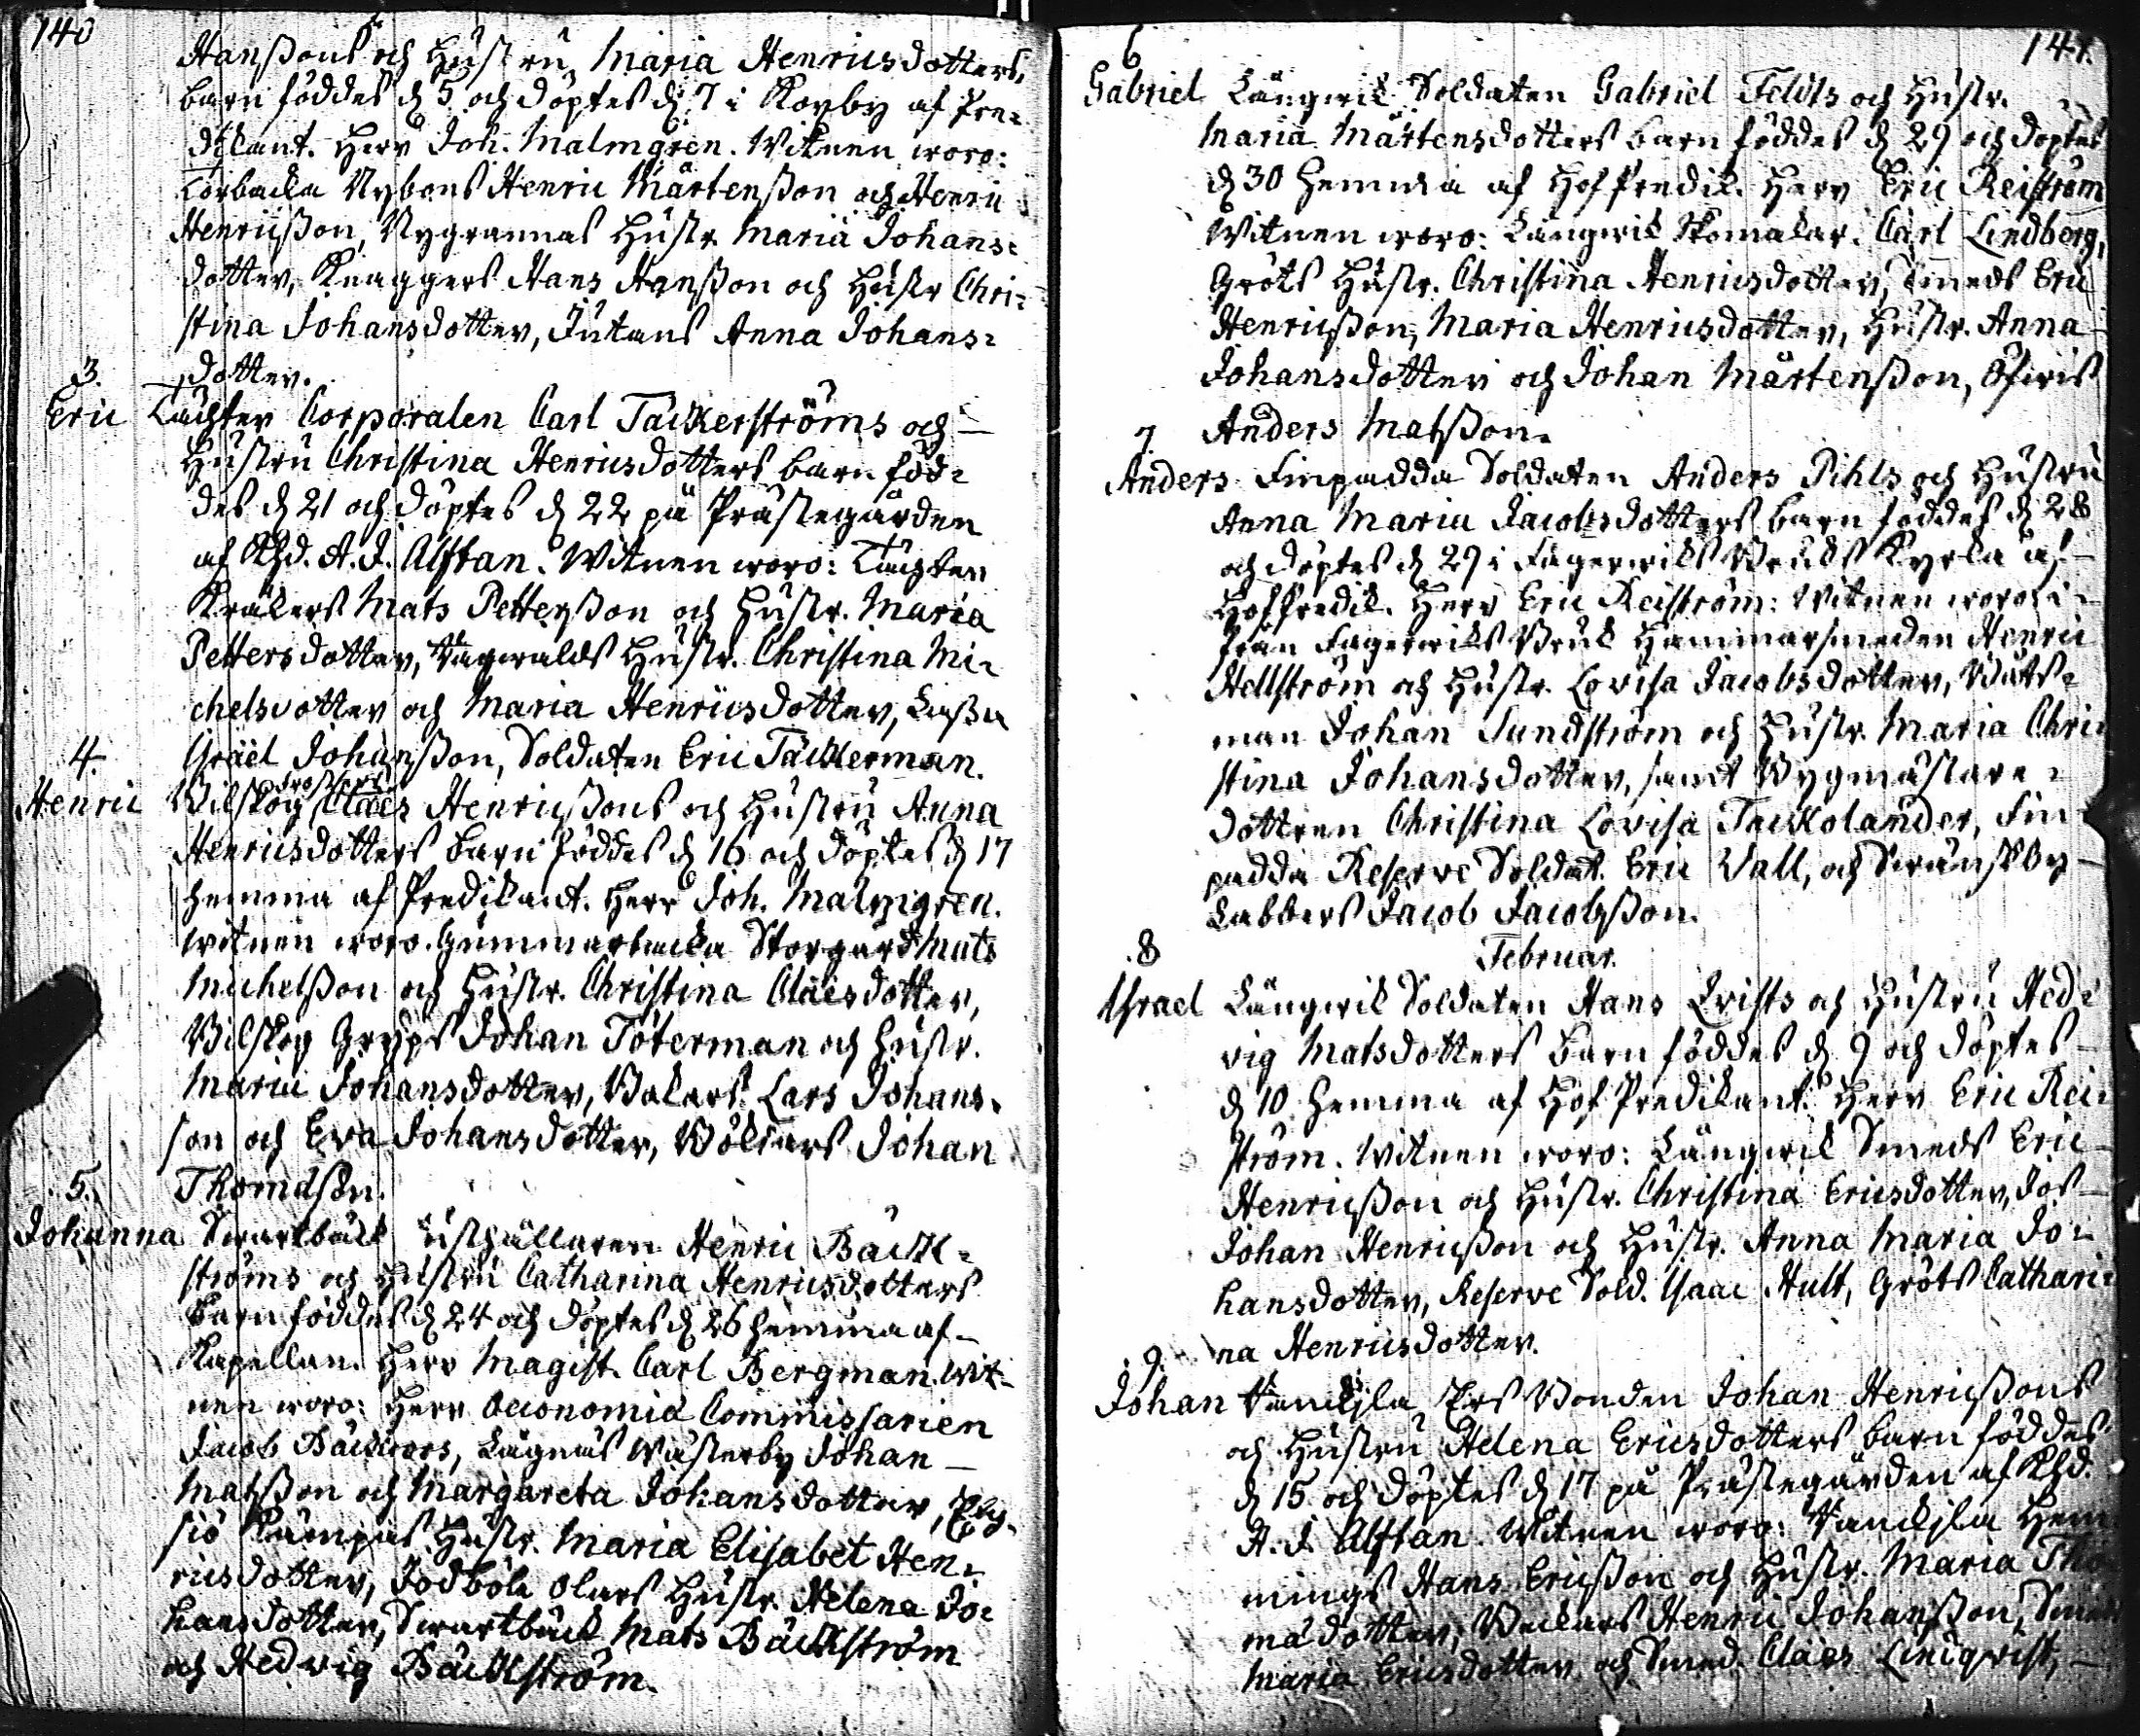 140
Hanßons och Hustru Maria Henricsdotters,
barn föddes d 5 och döptes d. 7 i Korby af Pre-
dikant. Herr Joh. Malmgren. Witnen woro:
Torbacka Nybons Henric Mårtenßon och Henric
Henricßon, Nygrannas Hustr. Maria Johans-
dotter, Knaggers Hans Hanßon och Hustr Chri-
stina Johansdotter, Jutans Anna Johans-
dotter.
3.
Eric Täckter Corporalen Carl Täckerströms och
Hustru Christina Henricsdotters barn föd-
des d 21 och döptes d 22 på Prästegården
af Khd. A. J. Alftan. Witnen woro: Täckter
Krakers Mats Petterßon och Hustr. Maria
Pettersdotter, Hustr. Christina Mi-
chelsdotter och Maria Henricsdotter,
Johanßon, Soldaten Eric Täckerman.
4.
Henric Wilskog Claes Henricßons och Hustru Anna
Henricsdotters barn föddes d 16 och döptes d 17
hemma af Predikant. Herr Joh. Malmgren.
witnen woro. Gummarbacka Storgård Mats
Michelßon och Hustr. Christina Claesdotter,
Wilskog Gryps Johan Töterman och Hustr.
Maria Johansdotter, Lars Johans-
son och Eva Johansdotter, Johan
Thomasson.
5.
Johanna Swartbäck Henric Bäck-
ströms och Hustru Catharina Henricsdotters
barn föddes d 24 och döptes d 26 hemma af
Kapellan. Herr Magist. Carl Bergman. Wit-
nen woro: Herr Oeconomiæ Commissarien
Jacob Bäckroos, Wästerby Johan
Matßon och Margareta Johansdotter,
sjö Kämpas Hustr. Maria Elisabet Hen-
ricsdotter, Jodböle Olars Hustr. Helena Jo-
hansdotter, Swartbäck Mats Bäckström
och Hedvig Bäckström.
141.
6
Gabriel Långwik Soldaten Gabriel Feldts och Hustr.
Maria Mårtensdotters barn föddes d 29 och döptes
d 30 hemma af Hofpredik. Herr Eric Reiström
Witnen woro: Långwik Skomakar. Carl Lindberg,
Gröts Hustr. Christina Henricsdotter, Smeds Eric
Henricßon, Maria Henricsdotter, Hustr. Anna
Johansdotter och Johan Mårtenßon, Öfwis
Anders Matßon.
7.
Anders Finpadda Soldaten Anders Pihls och Hustru
Anna Maria Jacobsdotters barn föddes d 28
och döptes d 29 i Fagerwiks Bruks Kyrka af
Hofpredik. Herr Eric Reiström: Witnen woro:
från Fagerwiks Bruk Hammarsmeden Henric
Hellström och Hustr. Lovisa Jacobsdotter, Båts-
man Johan Sundström och Hustr. Maria Chri-
stina Johansdotter, samt Bygmästare-
dottren Christina Lovisa Tackolander, Fin-
padda Reserve Soldat. Eric Vall, och
Labbers Jacob Jacobsson.
8
Februar.
Israel Långwik Soldaten Hans Qvists och Hustru Hed-
vig Matsdotters barn föddes d 9 och döptes
d 10 hemma af Hof Predikant. Herr Eric Rei-
ström. Witnen woro: Långwik Smeds Eric
Henricßon och Hustr. Christina Ericsdotter, Jos
Johan Henricßon och Hustr. Anna Maria Jo-
hansdotter, Reserve Sold. Isaac Hult, Gröts Cathari-
na Henricsdotter.
9.
Johan Bonden Johan Henricßons
och Hustru Helena Ericsdotters barn föddes
d 15 och döptes d 17 på Prästegården af Khd.
A. J. Alftan. Witnen woro: Hem-
mings Hans Ericßon och Hustr. Maria Tho-
madotter, Backars Henric Johanßon,
Maria Ericsdotter och Smed. Claes Lindqvist,